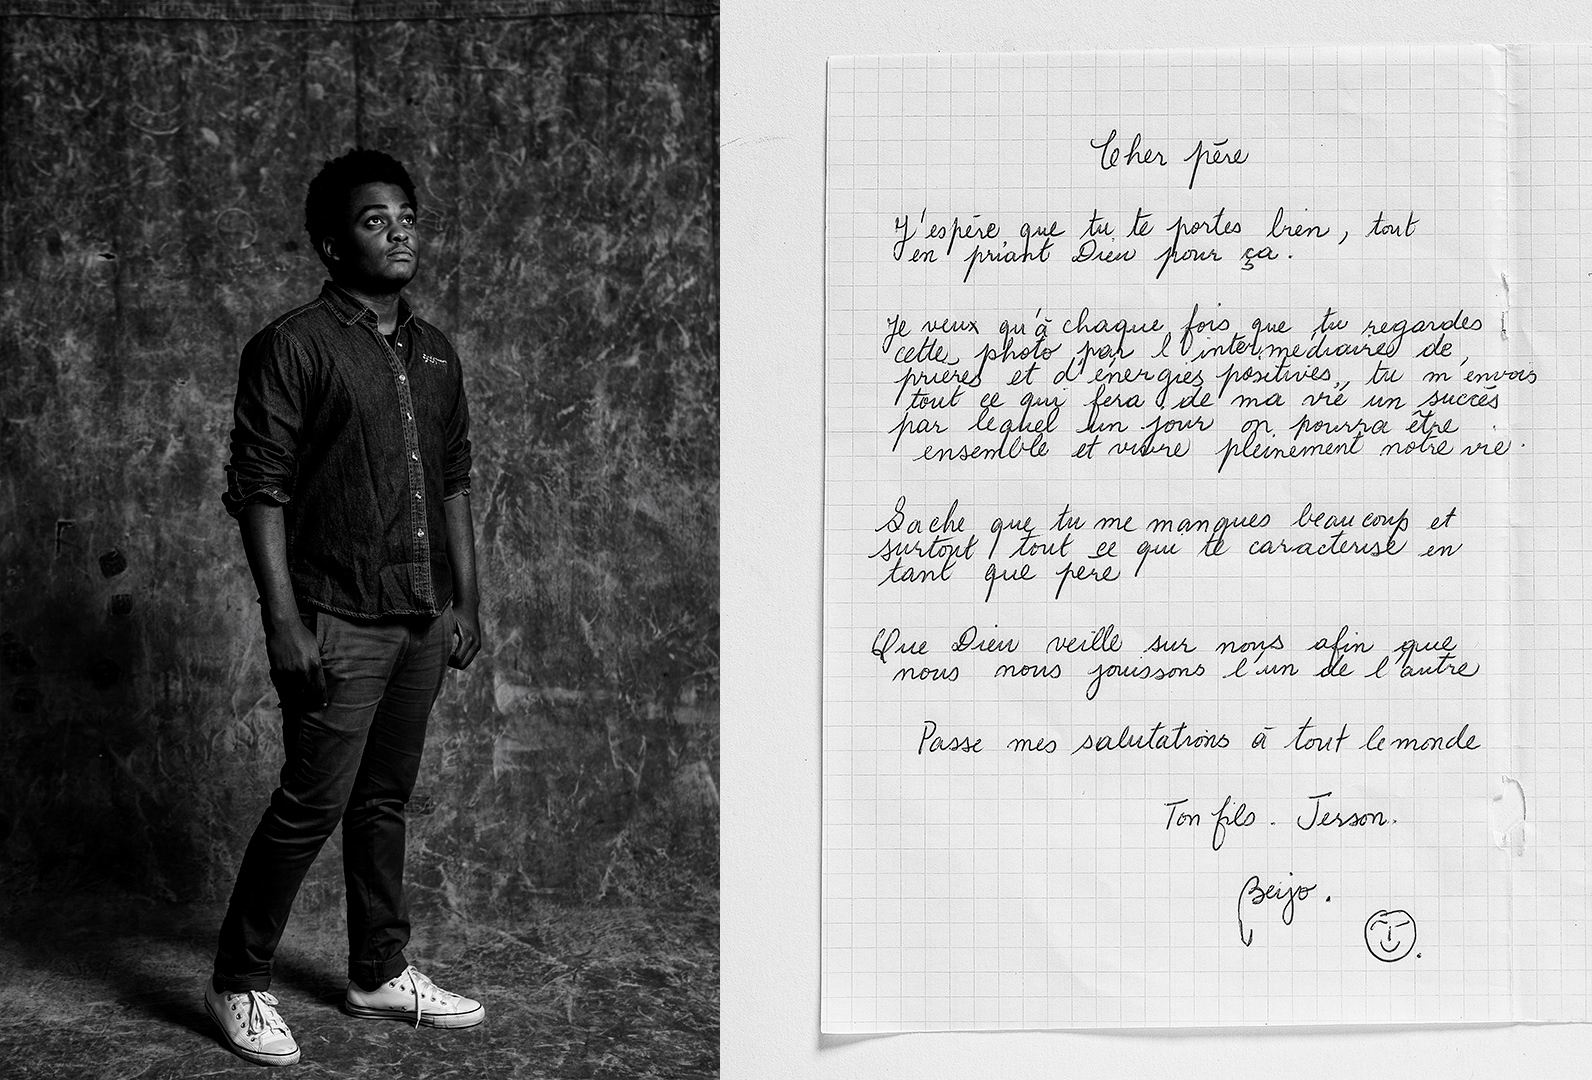 Cher père
J'espère que tu te portes bien, tout
en priant Dieu pour ça.
Je veux qu'à chaque fois que tu regardes
cette photo par l'intermédiaire de
prières et d'énergies positives, tu m'envois
tout ce qui fera de ma vie un succès
par lequel un jour on pourra être
ensemble et vivre pleinement notre vie.
Sache que tu me manques beaucoup et
surtout tout ce qui te caractérise en
tant que père
Que Dieu veille sur nous afin que
nous nous jouissons l'un de l'autre
Passe mes salutations à tout le monde
Ton fils. Jerson.
Beijo.